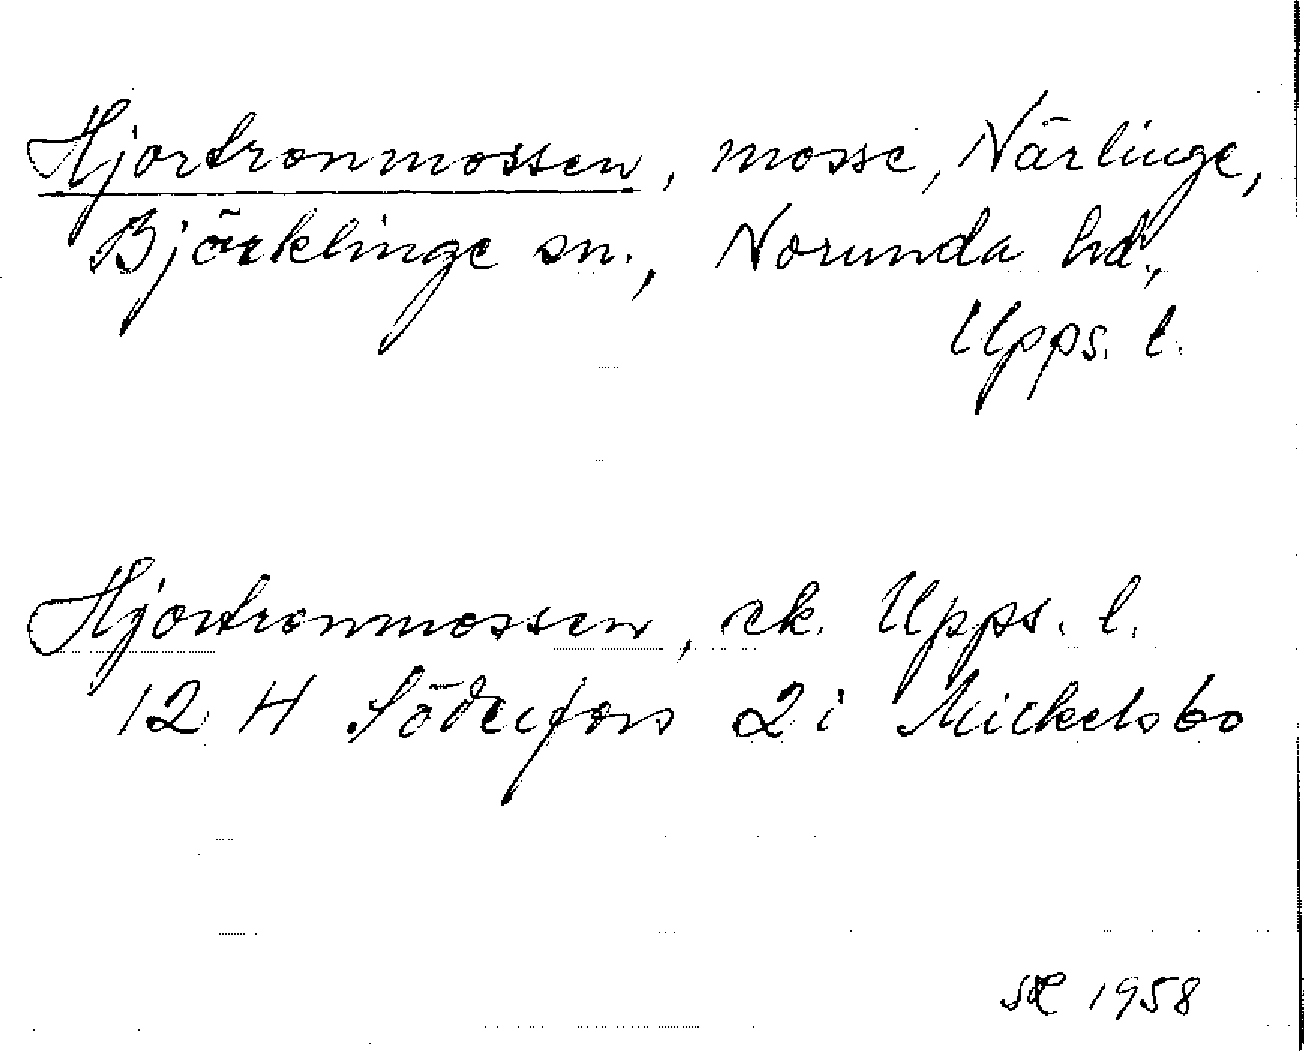 Hjortronmossen, mosse, Närlinge,
Björklinge sn., Norunda hd.,
Upps. l.
Hjortronmossen, ek. Upps. l.
12 H Söderfors 2 i Mickelsbo
1958